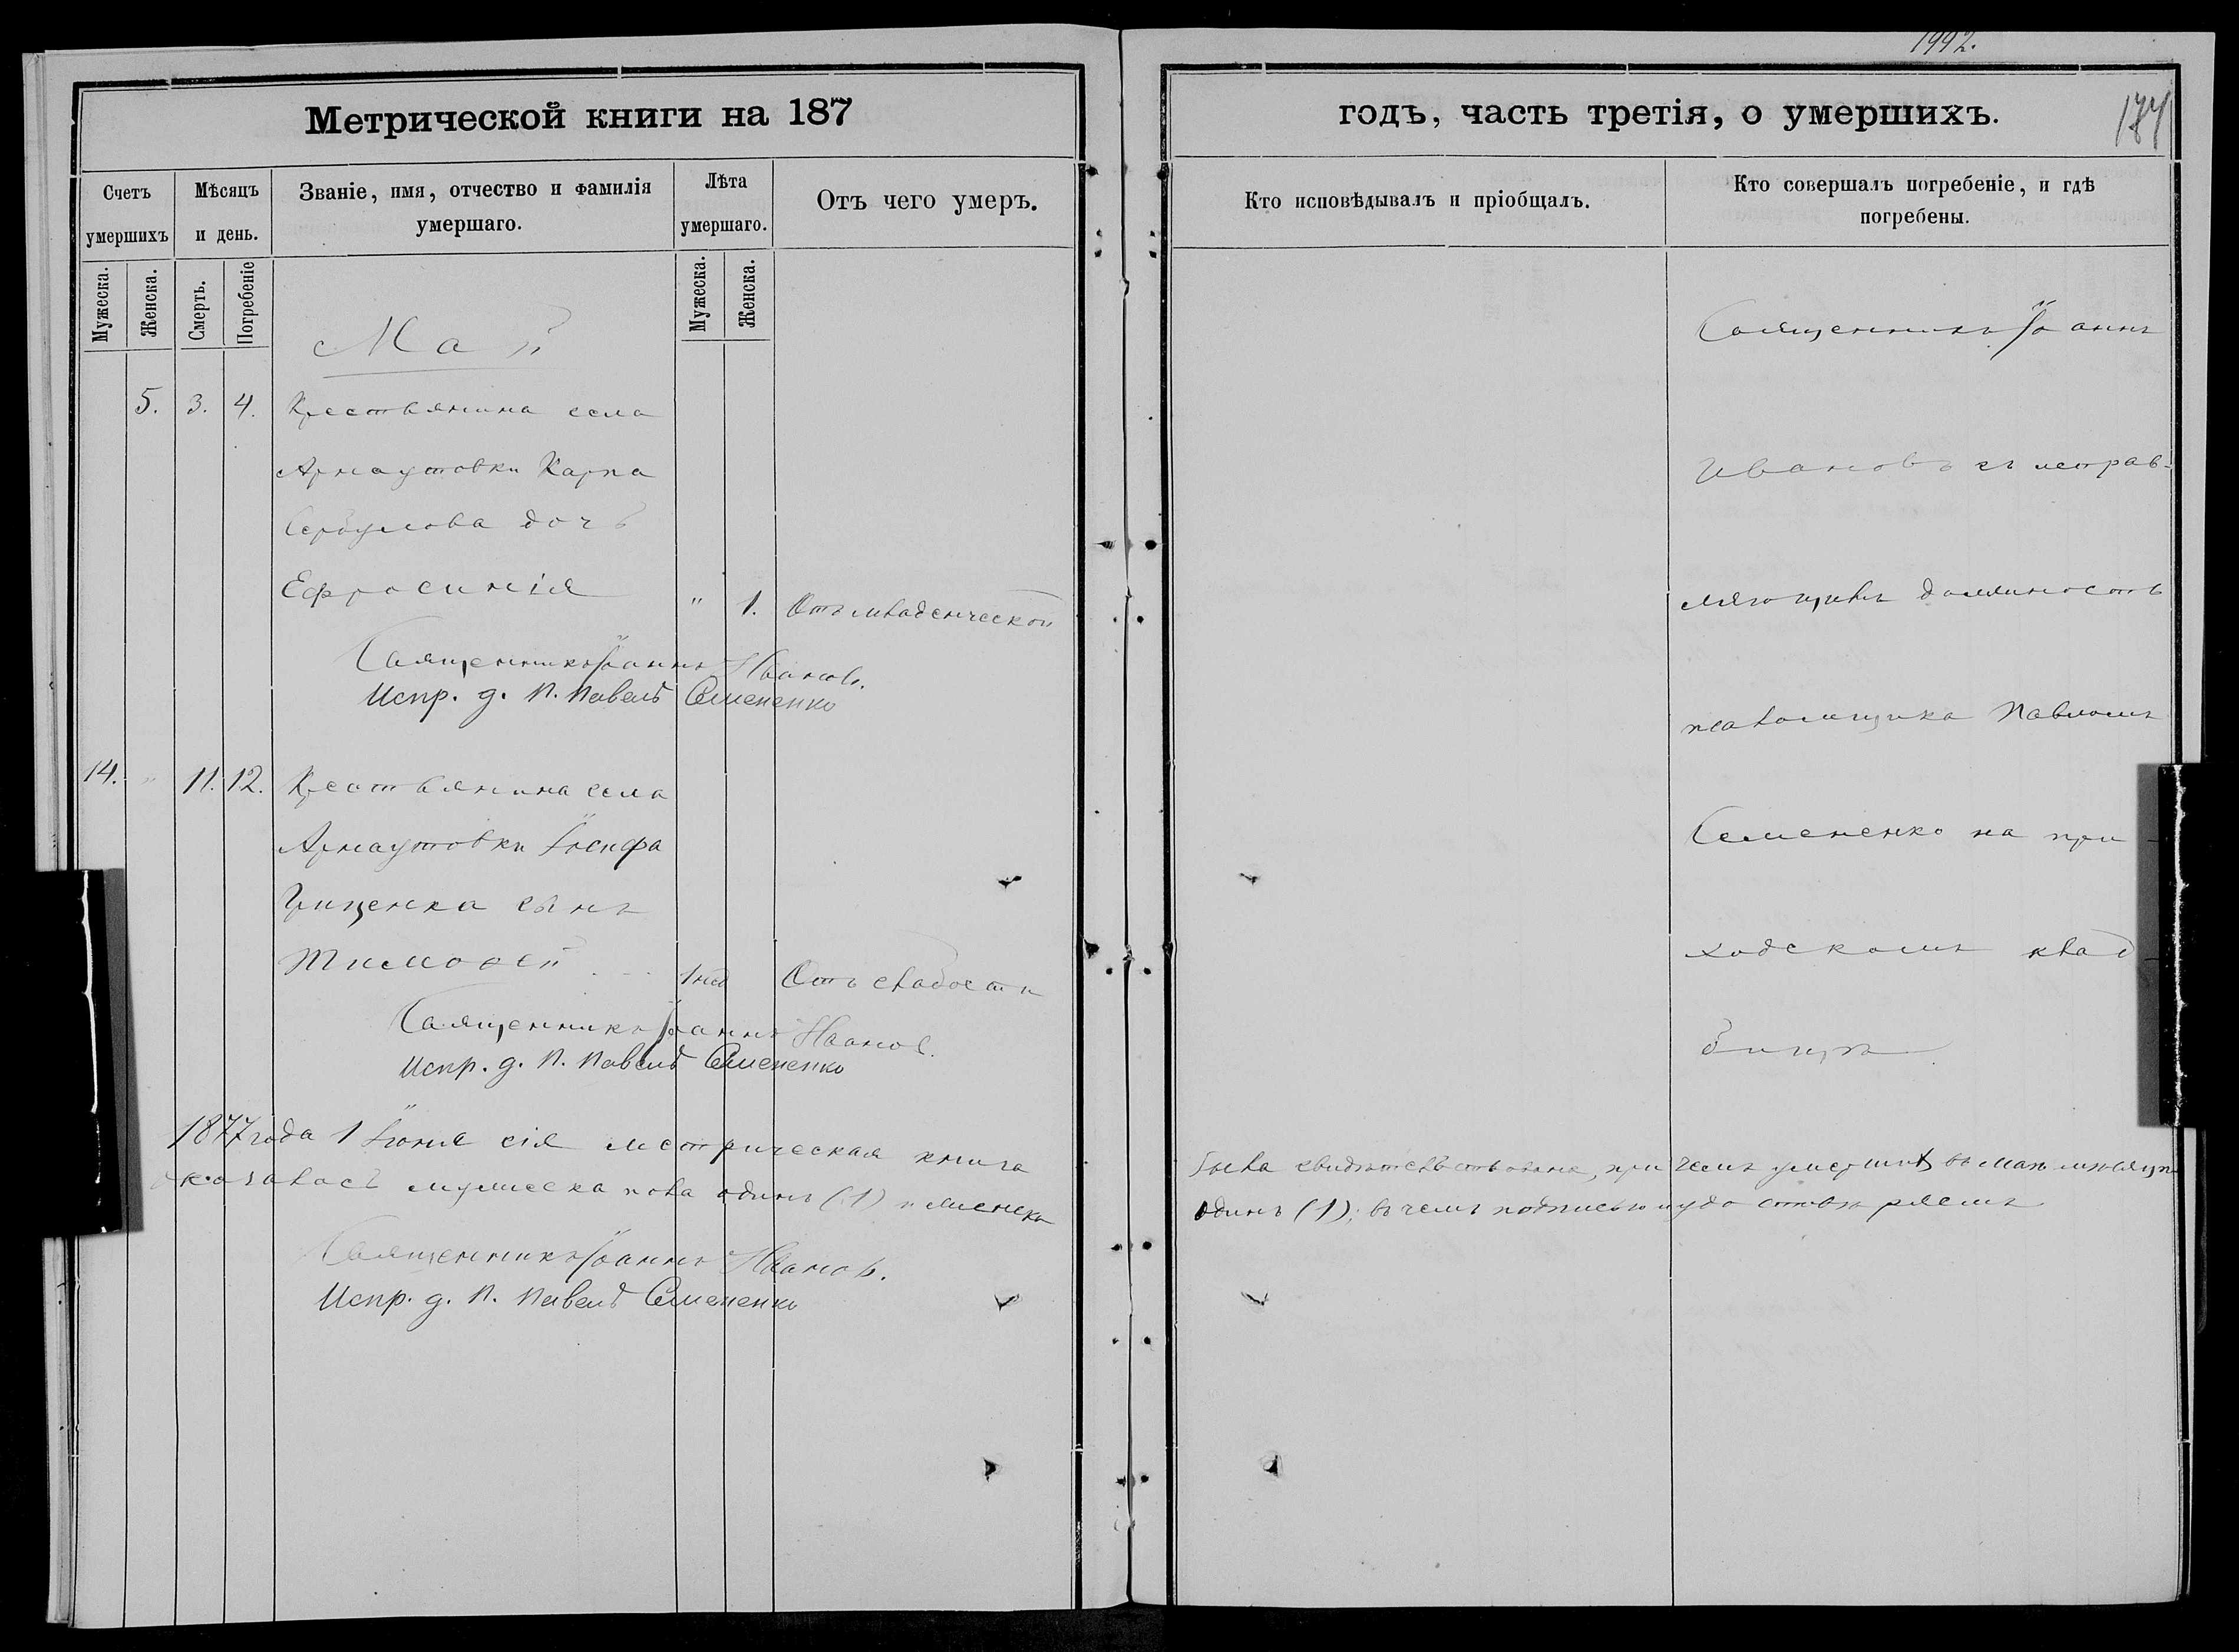 1992.
Метрической книги на 187
годъ, часть третія, о умершихъ.
Счетъ умершихъ
Мѣсяцъ и день.
Званіе, имя, отчество и фамилія умершаго.
Лѣта умершаго.
Отъ чего умеръ.
Кто исповѣдывалъ и пріобщалъ.
Кто совершалъ погребеніе, и гдѣ погребены.
Мужеска.
Женска.
Смерть.
Погребеніе
Мужеска.
Женска.
Май
5. 3. 4. Крестьянина села
Арнаутовки Карпа
Сербулова дочь
Ефросинія " 1. Отъ младенческой
Священникъ Іоаннъ Иванов.
Испр. д. П. Павелъ Семененко
14. " 11. 12. Крестьянина села
Арнаутовки Іосифа
Грищенка сынъ
Тимоѳей 1 нед Отъ слабости
Священникъ Іоаннъ Иванов.
Испр. д. П. Павелъ Семененко
Священникъ Іоаннъ
Ивановъ съ исправ-
ляющимъ должность
псаломщика Павломъ
Семененко на при-
ходскомъ клад-
бищѣ
1877 года 1 Іюня сія метрическая книга была свидѣтельствована, при чемъ умершихъ въ маѣ мѣсяцѣ
оказалось мужеска пола одинъ (1) и женска одинъ (1); въ чемъ подписью и удостовѣряемъ
Священникъ Іоаннъ Иванов.
Испр. д. П. Павелъ Семененко